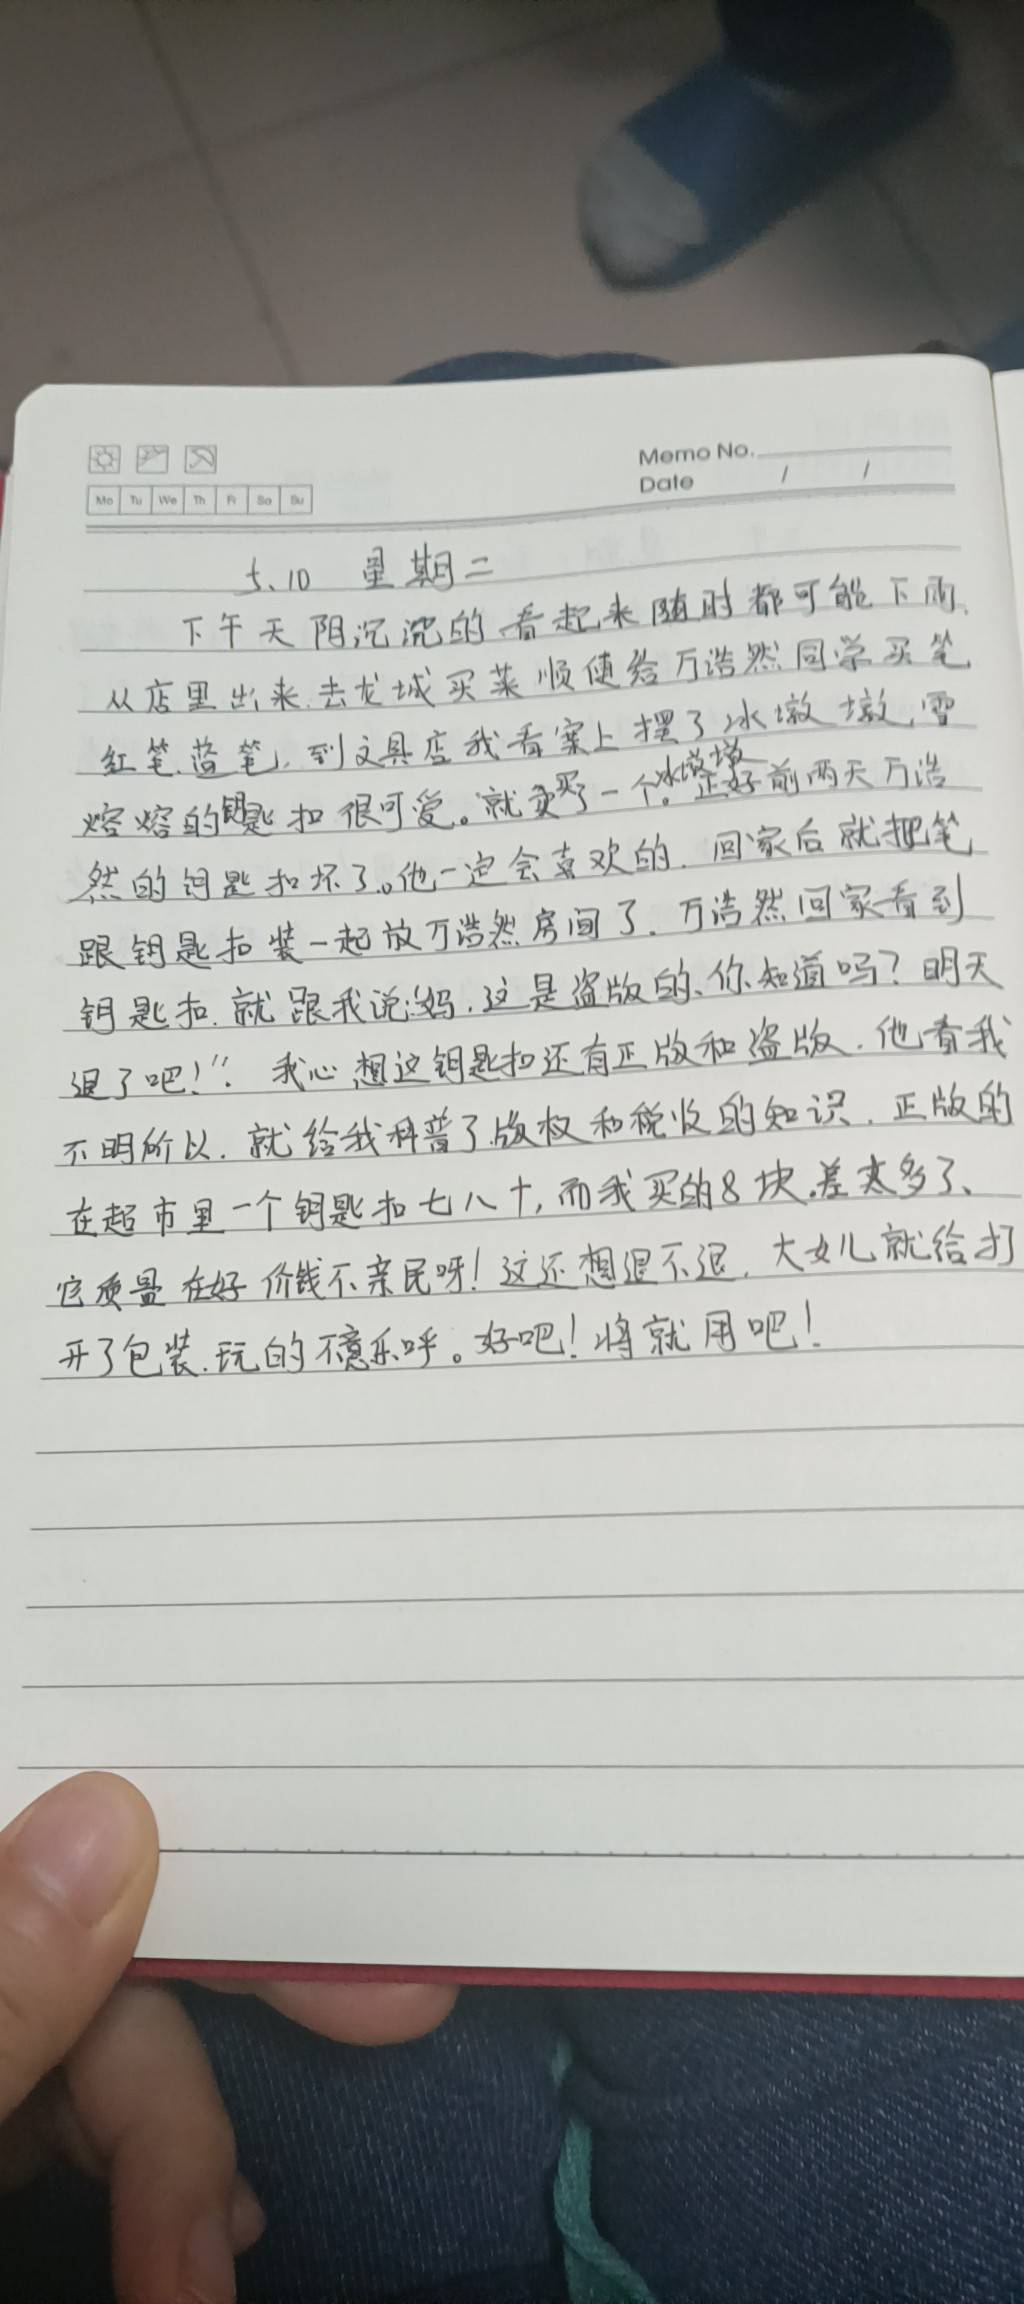 Memo No.
Date / /
Mo Tu We Th Fr Sa Su
5.10 星期二
下午天阴沉沉的看起来随时都可能下雨.
从店里出来.去龙城买菜顺便给万浩然同学买笔
红笔.蓝笔,到文具店我看案上摆了冰墩墩,雪
熔熔的钥匙扣很可爱。就买了一个冰墩墩。正好前两天万浩
然的钥匙扣坏了。他一定会喜欢的.回家后就把笔
跟钥匙扣装一起放万浩然房间了.万浩然回家看到
钥匙扣.就跟我说:"妈.这是盗版的、你知道吗?明天
退了吧!". 我心想这钥匙扣还有正版和盗版.他看我
不明所以.就给我科普了版权和税收的知识.正版的
在超市里一个钥匙扣七八十,而我买的8块.差太多了、
它质量在好价钱不亲民呀!这还想退不退.大女儿就给打
开了包装.玩的不意乐呼。好吧!将就用吧!